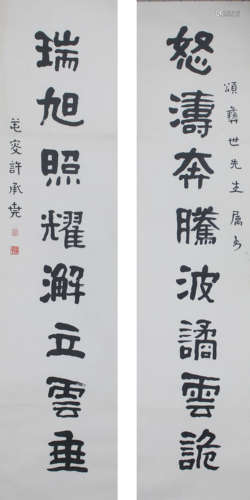 怒濤奔騰波譎雲詭
頌彝世先生屬
瑞旭照耀澥立雲垂
芚叜許承堯